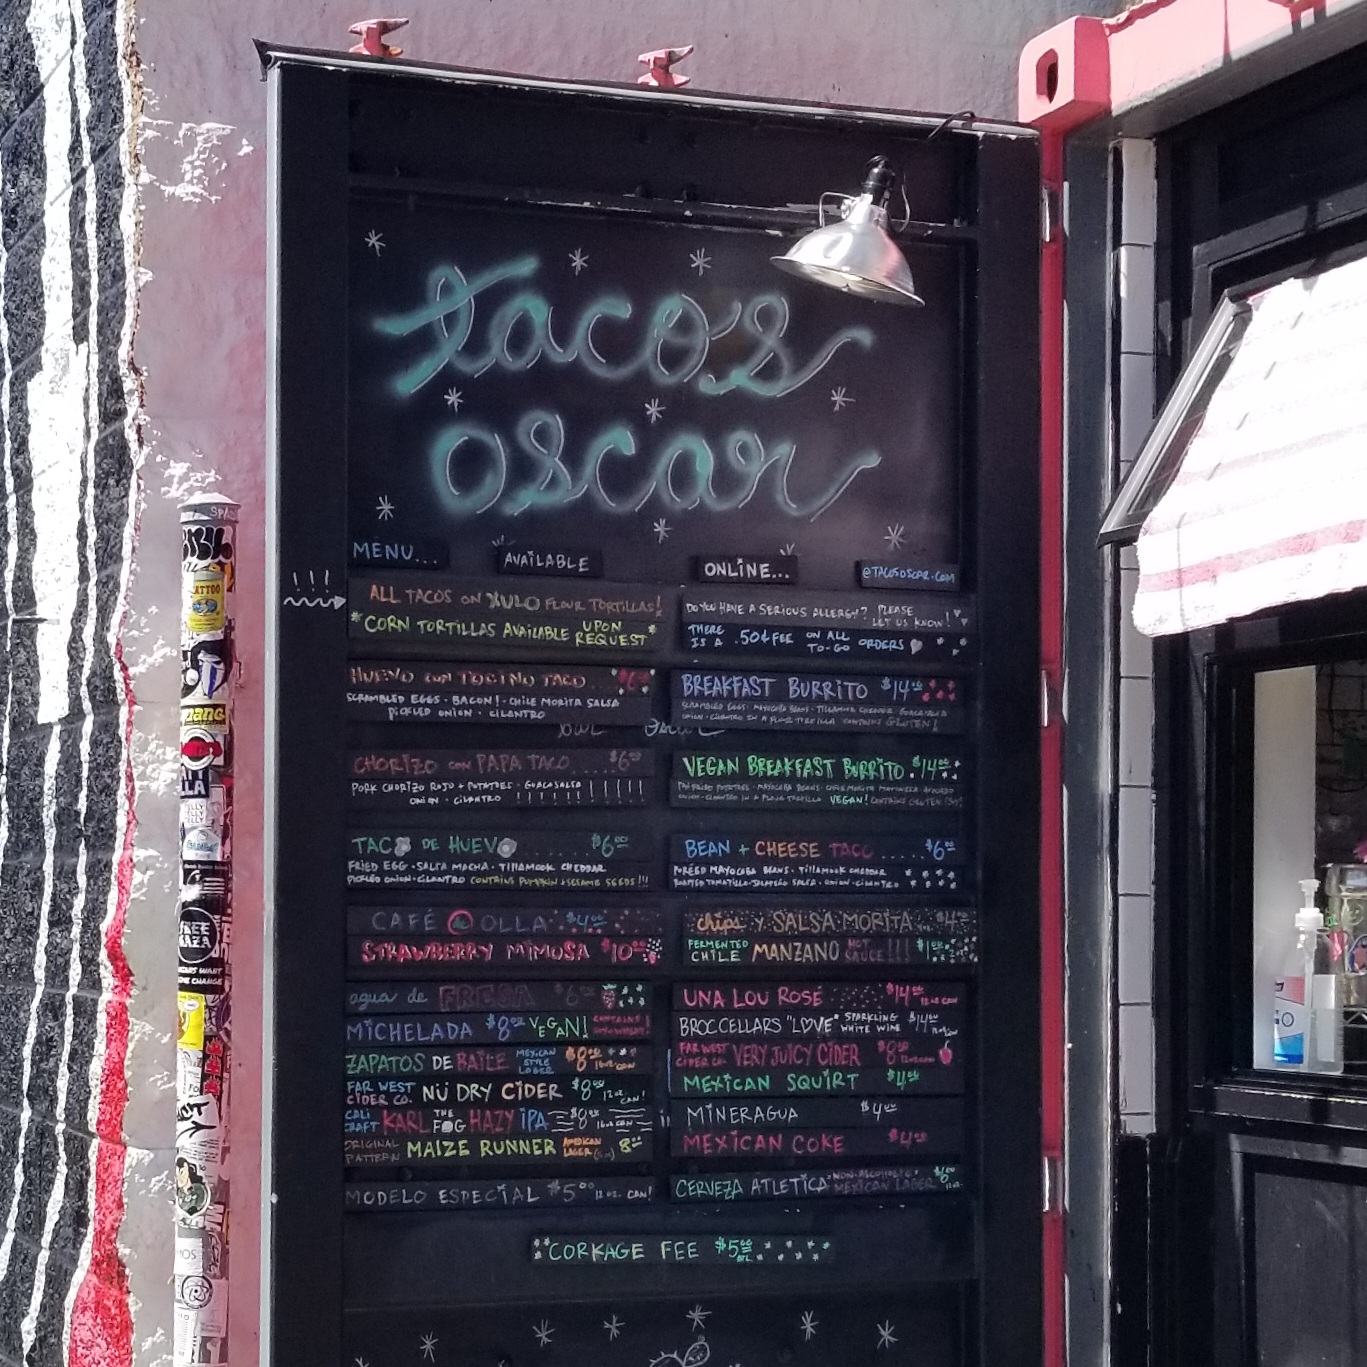 tacos
oscar
MENU...
AVAILABLE
ONLINE...
@TACOSOSCAR.COM
ALL TACOS ON XULO FLOUR TORTILLAS!
*CORN TORTILLAS AVAILABLE UPON REQUEST*
HUEVO CON TOCINO TACO
SCRAMBLED EGGS · BACON! · CHILE MORITA SALSA
PICKLED ONION · CILANTRO
CHORIZO CON PAPA TACO ....$6⁰⁰
PORK CHORIZO ROJO + POTATOES · GUACASALSA
ONION · CILANTRO
TACO DE HUEVO $6⁰⁰
FRIED EGG · SALSA MACHA · TILLAMOOK CHEDDAR
PICKLED ONION · CILANTRO CONTAINS PUMPKIN + SESAME SEEDS!!!
CAFÉ @ OLLA $4⁰⁰
STRAWBERRY MIMOSA $10⁰⁰
agua de FRESA $6⁰⁰
MICHELADA $8⁰⁰ VEGAN!
ZAPATOS DE BAILE MEXICAN STYLE LAGER $8⁰⁰ 16oz CAN
FAR WEST CIDER CO. NÜ DRY CIDER $8⁰⁰ 12oz. CAN!
CALI CRAFT KARL THE FOG HAZY IPA $8⁰⁰ 16oz CAN
ORIGINAL PATTERN MAIZE RUNNER AMERICAN LAGER 8⁰⁰
MODELO ESPECIAL $5⁰⁰ 12 oz. CAN!
DO YOU HAVE A SERIOUS ALLERGY? PLEASE LET US KNOW!
THERE IS A .50¢ FEE ON ALL TO-GO ORDERS
BREAKFAST BURRITO $14⁰⁰
SCRAMBLED EGGS · MAYOCOBA BEANS · TILLAMOOK CHEDDAR GUACASALSA
ONION · CILANTRO IN A FLOUR TORTILLA CONTAINS GLUTEN!
VEGAN BREAKFAST BURRITO .$14⁰⁰
VEGAN! CONTAINS GLUTEN
BEAN + CHEESE TACO .....$6⁰⁰
PURÉED MAYOCOBA BEANS · TILLAMOOK CHEDDAR
ROASTED TOMATILLO-JALAPEÑO SALSA · ONION · CILANTRO
chips Y SALSA MORITA $4⁰⁰
FERMENTED CHILE MANZANO HOT SAUCE!!! $1⁰⁰
UNA LOU ROSÉ $14⁰⁰ 12oz CAN
BROC CELLARS "LOVE" SPARKLING WHITE WINE $14⁰⁰
FAR WEST CIDER CO. VERY JUICY CIDER $8⁰⁰ 12oz CAN
MEXICAN SQUIRT $4⁰⁰
MINERAGUA $4⁰⁰
MEXICAN COKE $4⁰⁰
CERVEZA ATLETICA NON-ALCOHOLIC MEXICAN LAGER $6⁰⁰
CORKAGE FEE $5⁰⁰ BTL